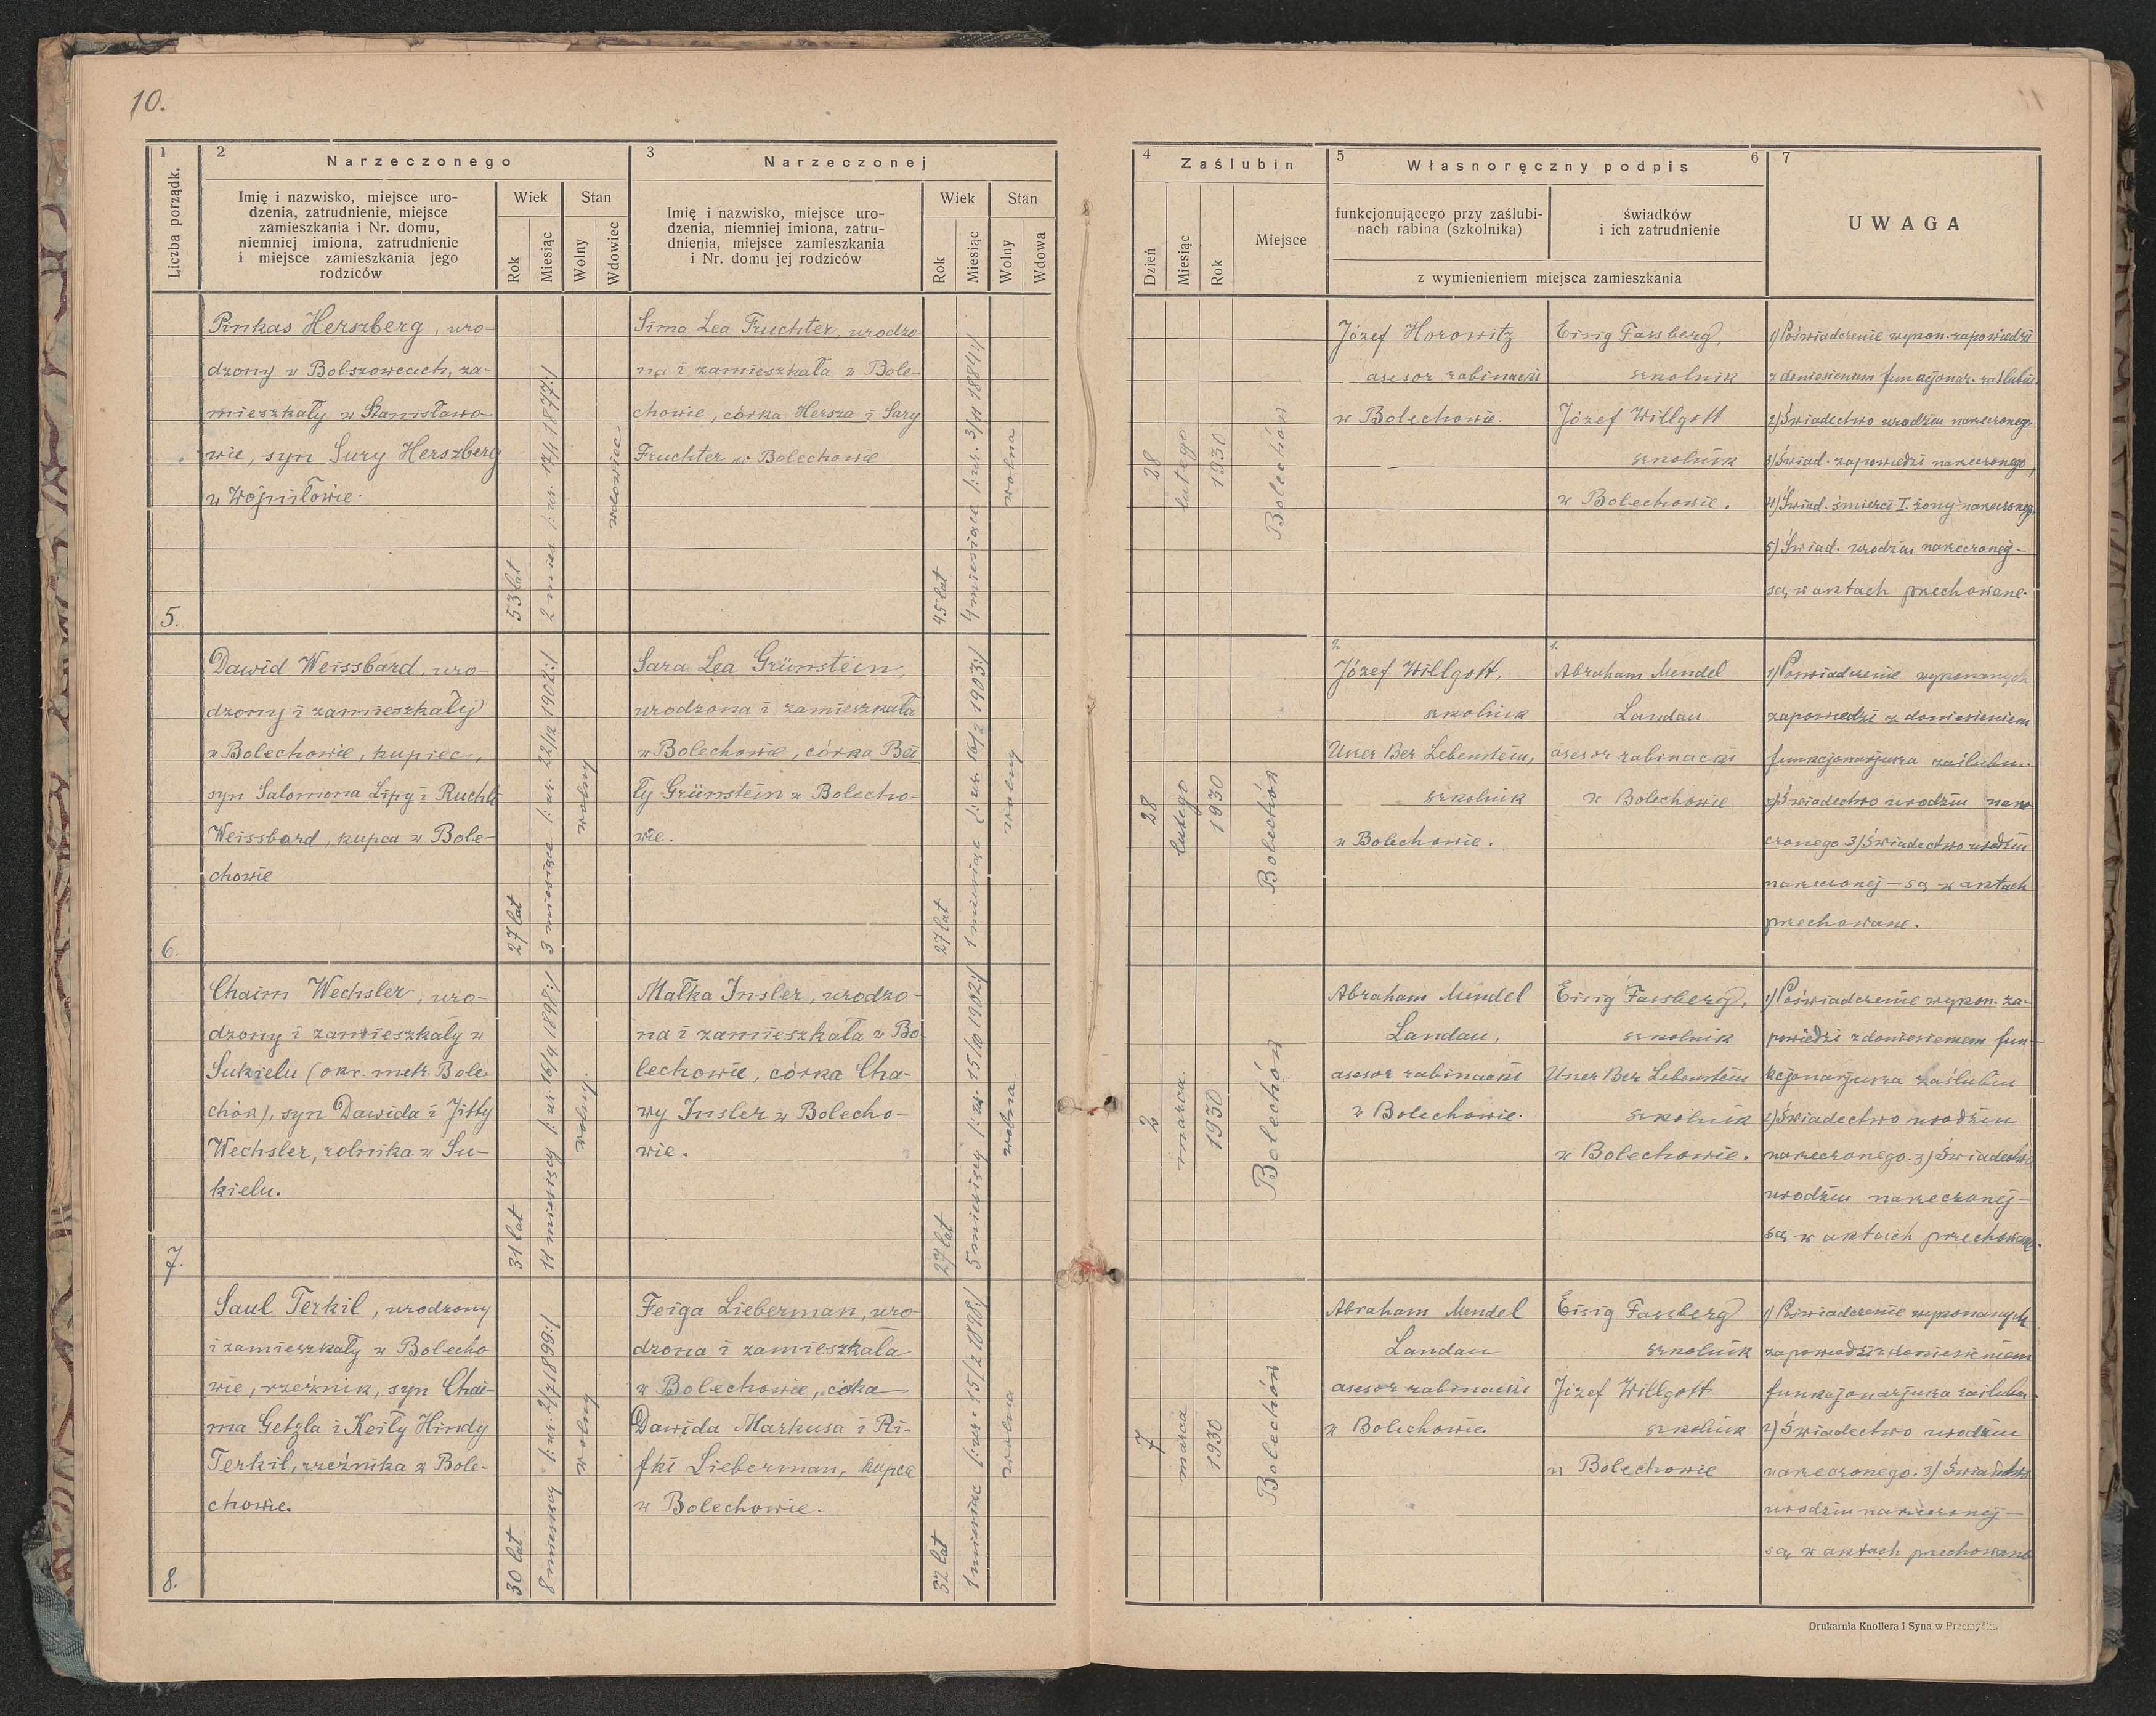 10.
11
1
2
Narzeczonego
3
Narzeczonej
Liczba porządk.
Imię i nazwisko, miejsce uro-
dzenia, zatrudnienie, miejsce
zamieszkania i Nr. domu,
niemniej imiona, zatrudnienie
i miejsce zamieszkania jego
rodziców
Wiek
Stan
Rok
Miesiąc
Wolny
Wdowiec
Imię i nazwisko, miejsce uro-
dzenia, niemniej imiona, zatru-
dnienia, miejsce zamieszkania
i Nr. domu jej rodziców
Wiek
Stan
Rok
Miesiąc
Wolny
Wdowa
4
Zaślubin
5
Własnoręczny podpis
6
7
Dzień
Miesiąc
Rok
Miejsce
funkcjonującego przy zaślubi-
nach rabina (szkolnika)
świadków
i ich zatrudnienie
z wymienieniem miejsca zamieszkania
UWAGA
5.
Pinkas Herszberg, uro-
dzony w Bolszowcach, za-
mieszkały w Stanisławo-
wie, syn Sury Herszberg
w Wojniłowie.
53 lat
2 mies. /: ur. 17/1 1877:/
wdowiec
Sima Lea Fruchter, urodzo-
na i zamieszkała w Bole-
chowie, córka Hersza i Sary
Fruchter w Bolechowie
45 lat
4 miesiące /: ur. 3/11 1884:/
wolna
28
lutego
1930
Bolechów
Józef Horowitz
asesor rabinacki
w Bolechowie.
Eisig Fassberg,
szkolnik
Józef Willgott
szkolnik
w Bolechowie.
1) Poświadczenie wykon. zapowiedzi
z doniesieniem funkcjonar. zaślubin
2) Świadectwo urodzin narzeczoneg.
3) Świad. zapowiedzi narzeczonego,
4) Świad. śmierci I. żony narzeczoneg.
5) Świad. urodzin narzeczonej -
są w aktach przechowane.
6.
Dawid Weissbard, uro-
dzony i zamieszkały
w Bolechowie, kupiec,
syn Salomona Lipy i Ruchli
Weissbard, kupca w Bole-
chowie
27 lat
3 miesiące /: ur. 22/12 1902:/
wolny
Sara Lea Grünstein,
urodzona i zamieszkała
w Bolechowie, córka Bei
ly Grünstein w Bolecho-
wie.
27 lat
1 miesiąc /: ur. 16/2 1903:/
wolny
28
lutego
1930
Bolechów
2.
Józef Willgott,
szkolnik
Uszer Ber Lebenstein,
szkolnik
w Bolechowie.
1.
Abraham Mendel
Landau
asesor rabinacki
w Bolechowie
1) Poświadczenie wykonanych
zapowiedzi z doniesieniem
funkcjonarjusza zaślubin.
2) Świadectwo urodzin narze
czonego 3) Świadectwo urodzin
narzeczonej - są w aktach
przechowane.
7.
Chaim Wechsler, uro-
dzony i zamieszkały w
Sukielu (okr. metr. Bole-
chów), syn Dawida i Jitty
Wechsler, rolnika w Su-
kielu.
31 lat
11 miesięcy /: ur. 16/4 1898:/
wolny.
Małka Insler, urodzo-
na i zamieszkała w Bo-
lechowie, córka Cha-
wy Insler w Bolecho-
wie.
27 lat
5 miesięcy /: ur. 15/10 1902:/
wolna
2
marca
1930
Bolechów
Abraham Mendel
Landau,
asesor rabinacki
w Bolechowie.
Eisig Fassberg,
szkolnik
Uszer Ber Lebenstein
szkolnik
w Bolechowie.
1) Poświadczenie wykon. za-
powiedzi z doniesieniem fun-
kcjonarjusza zaślubin
2) Świadectwo urodzin
narzeczonego. 3) Świadectwo
urodzin narzeczonej -
są w aktach przechowane.
8.
Saul Terkil, urodzony
i zamieszkały w Bolecho
wie, rzeźnik, syn Chai-
ma Getzla i Keily Hindy
Terkil, rzeźnika w Bole-
chowie.
30 lat
8 miesięcy /: ur. 2/7 1899:/
wolny
Feiga Lieberman, uro-
dzona i zamieszkała
w Bolechowie, córka
Dawida Markusa i Ri-
fki Lieberman, kupca
w Bolechowie.
32 lat
1 miesiąc /: ur. 15/2 1898:/
wolna
7
marca
1930
Bolechów
Abraham Mendel
Landau
asesor rabinacki
w Bolechowie.
Eisig Fassberg
szkolnik
Józef Willgott
szkolnik
w Bolechowie
1) Poświadczenie wykonanych
zapowiedzi z doniesieniem
funkcjonarjusza zaślubin.
2) Świadectwo urodzin
narzeczonego. 3) Świadectwo
urodzin narzeczonej -
są w aktach przechowane
Drukarnia Knollera i Syna w Przemyślu.